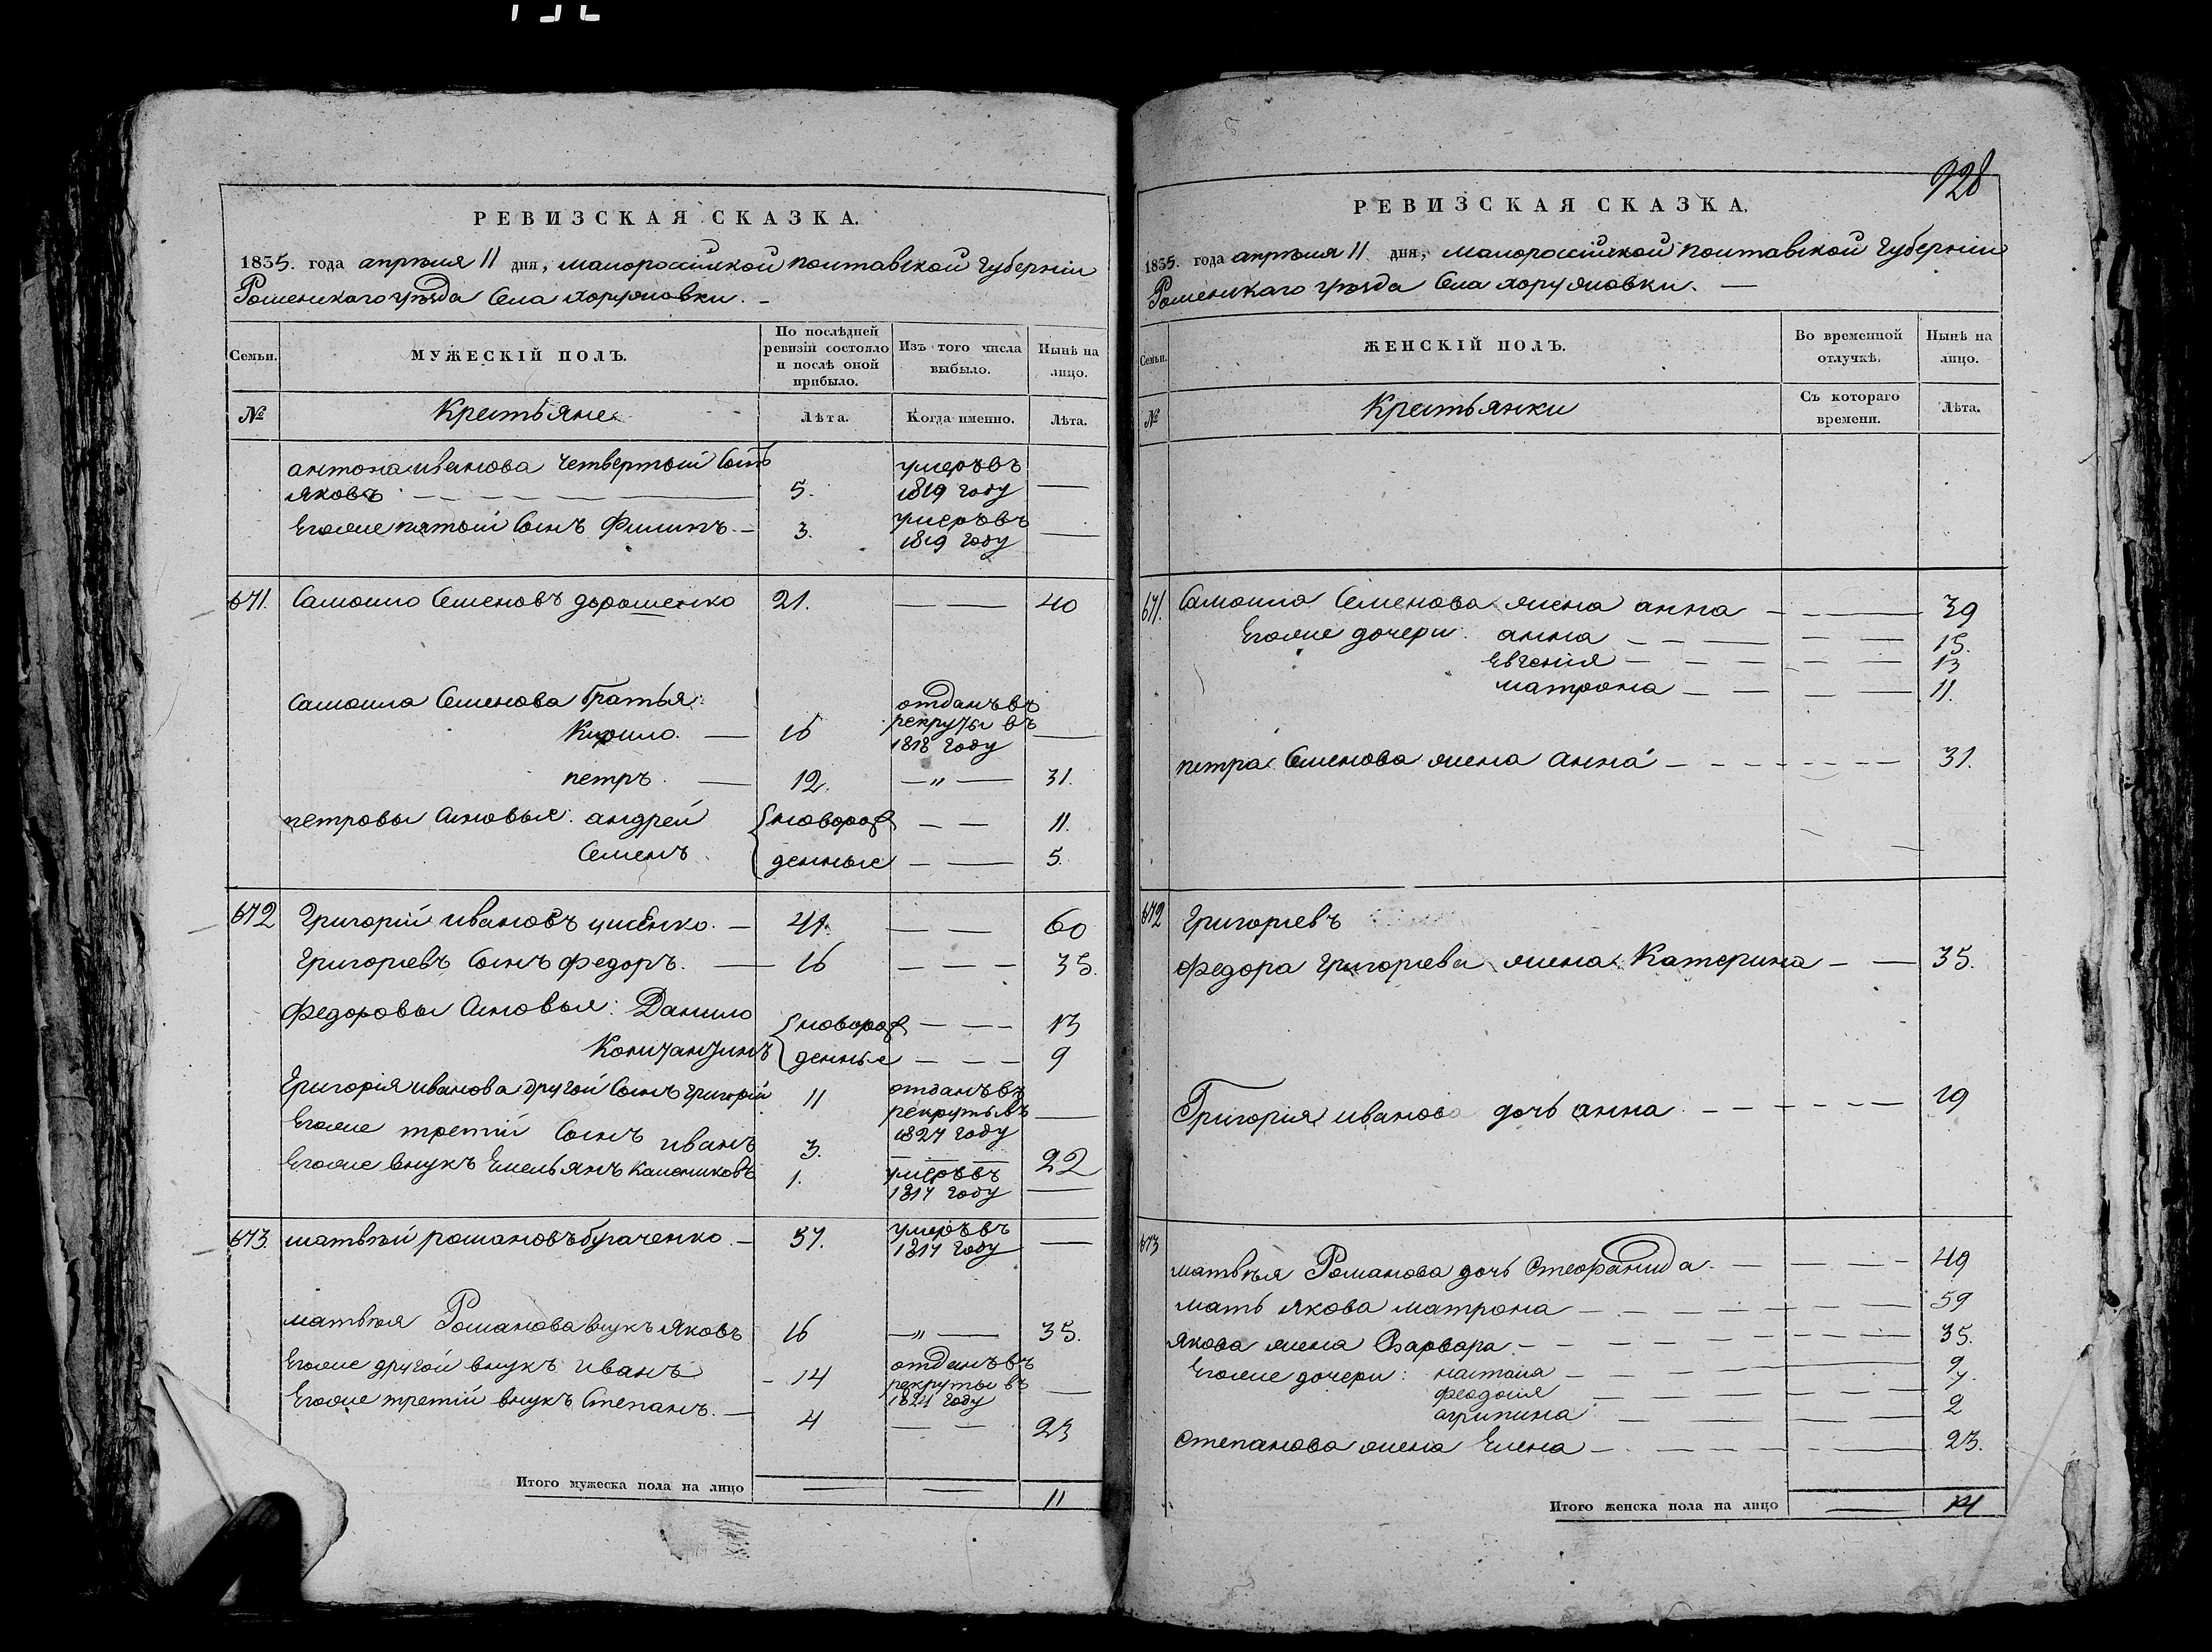 928
РЕВИЗСКАЯ СКАЗКА.
1835. года апрѣля 11 дня, малороссійской полтавской губерніи
Роменскаго уѣзда села хоружовки.
Семьи.
МУЖЕСКІЙ ПОЛЪ.
По послѣдней ревизіи состояло и послѣ оной прибыло.
Изъ того числа выбыло.
Нынѣ на лицо.
№
Крестьяне
Лѣта.
Когда именно.
Лѣта.
антона иванова четвертый сынъ
яковъ 5. умеръ въ 1819 году
Егоже пятый сынъ Филипъ. 3. умеръ въ 1819 году
671. Самойло Семеновъ дорошенко 21. 40
самойла Семенова братья:
Кирило. 16 отданъ въ рекруты въ 1818 году
петръ. 12. 31.
петровы сыновья: андрей {новорож 11.
Семенъ денные 5.
672 Григорій ивановъ 41. 60
Григорьевъ сынъ федоръ. 16 35.
федоровы сыновья: Данило {новорож 13
Константинъ {денные 9
Григорія иванова другой сынъ григорій 11 отданъ въ рекруты въ 1827 году
Егоже третій сынъ иванъ 3. 22
Егоже внукъ Емельянъ 1. умеръ въ 1817 году
673. матвѣй романовъ бугаченко. 57. умеръ въ 1817 году
матвѣя Романова внукъ яковъ 16 35.
Егоже другой внукъ иванъ 14 отданъ въ рекруты въ 1821 году
Егоже третій внукъ Степанъ. 4 23
Итого мужеска пола на лицо 11
РЕВИЗСКАЯ СКАЗКА.
1835. года апрѣля 11 дня, малороссійской полтавской губерніи
Роменскаго уѣзда села хоружовки.
Семьи.
ЖЕНСКІЙ ПОЛЪ.
Во временной отлучкѣ.
Нынѣ на лицо.
№
Крестьянки
Съ котораго времени.
Лѣта.
671. Самойла Семенова жена анна 39
Егоже дочери: анна 15.
Евгенія 13
матрона 11.
петра Семенова жена анна 31.
672 Григорьевъ
федора григорьева жена Катерина 35.
Григорія иванова дочь анна 19
673
матвѣя Романова дочь Стефанида. 49
мать якова матрона 59
якова жена Варвара. 35.
Егоже дочери: настасія 9
феодосія 7.
агрипина 2
степанова жена Елена 23.
Итого женска пола на лицо 14